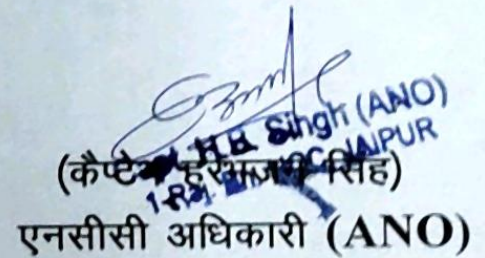 H.B. Singh (ANO)
1-Raj. JAIPUR
(कैप्टन हरभजन सिंह)
एनसीसी अधिकारी (ANO)